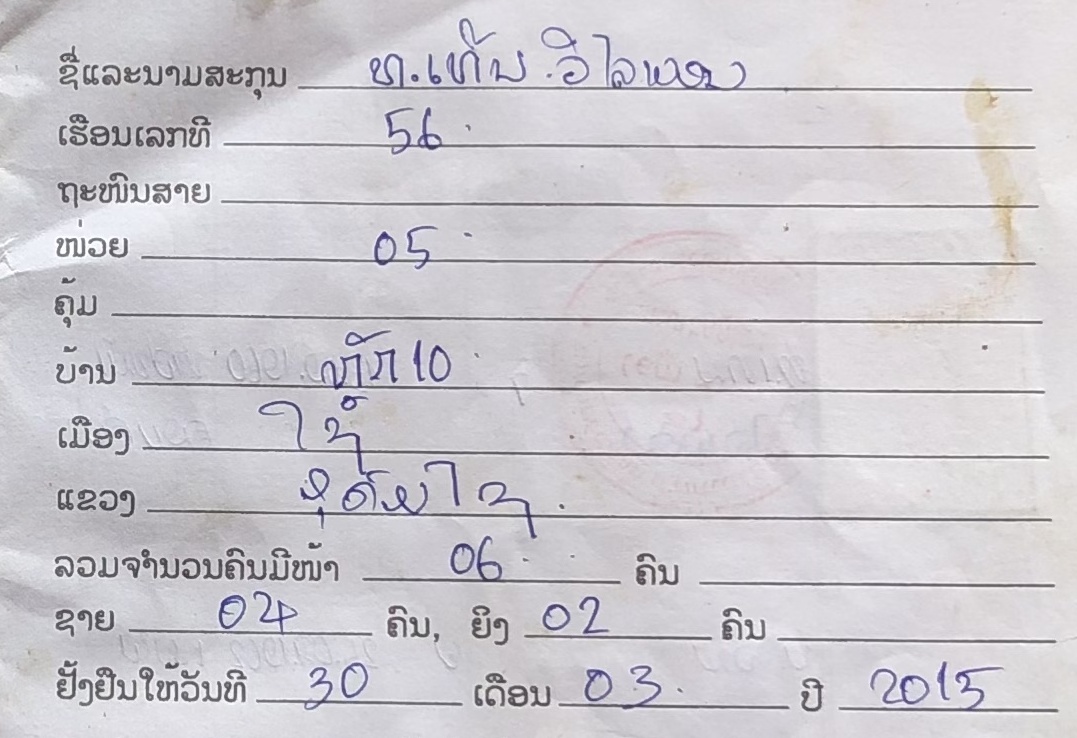 ຊື່ແລະນາມສະກຸນ ທ.ເຫັມ ວິໄລ
ເຮືອນເລກທີ 56
ຖະໜົນສາຍ
ໜ່ວຍ 05
ຄຸ້ມ
ບ້ານ ຫຼັກ 10
ເມືອງ ໄຊ
ແຂວງ ອຸດົມໄຊ
ລວມຈຳນວນຄົນມີໜ້າ 06 ຄົນ
ຊາຍ 04 ຄົນ, ຍິງ 02 ຄົນ
ຢັ້ງຢືນໃຫ້ວັນທີ 30 ເດືອນ 03 ປີ 2015